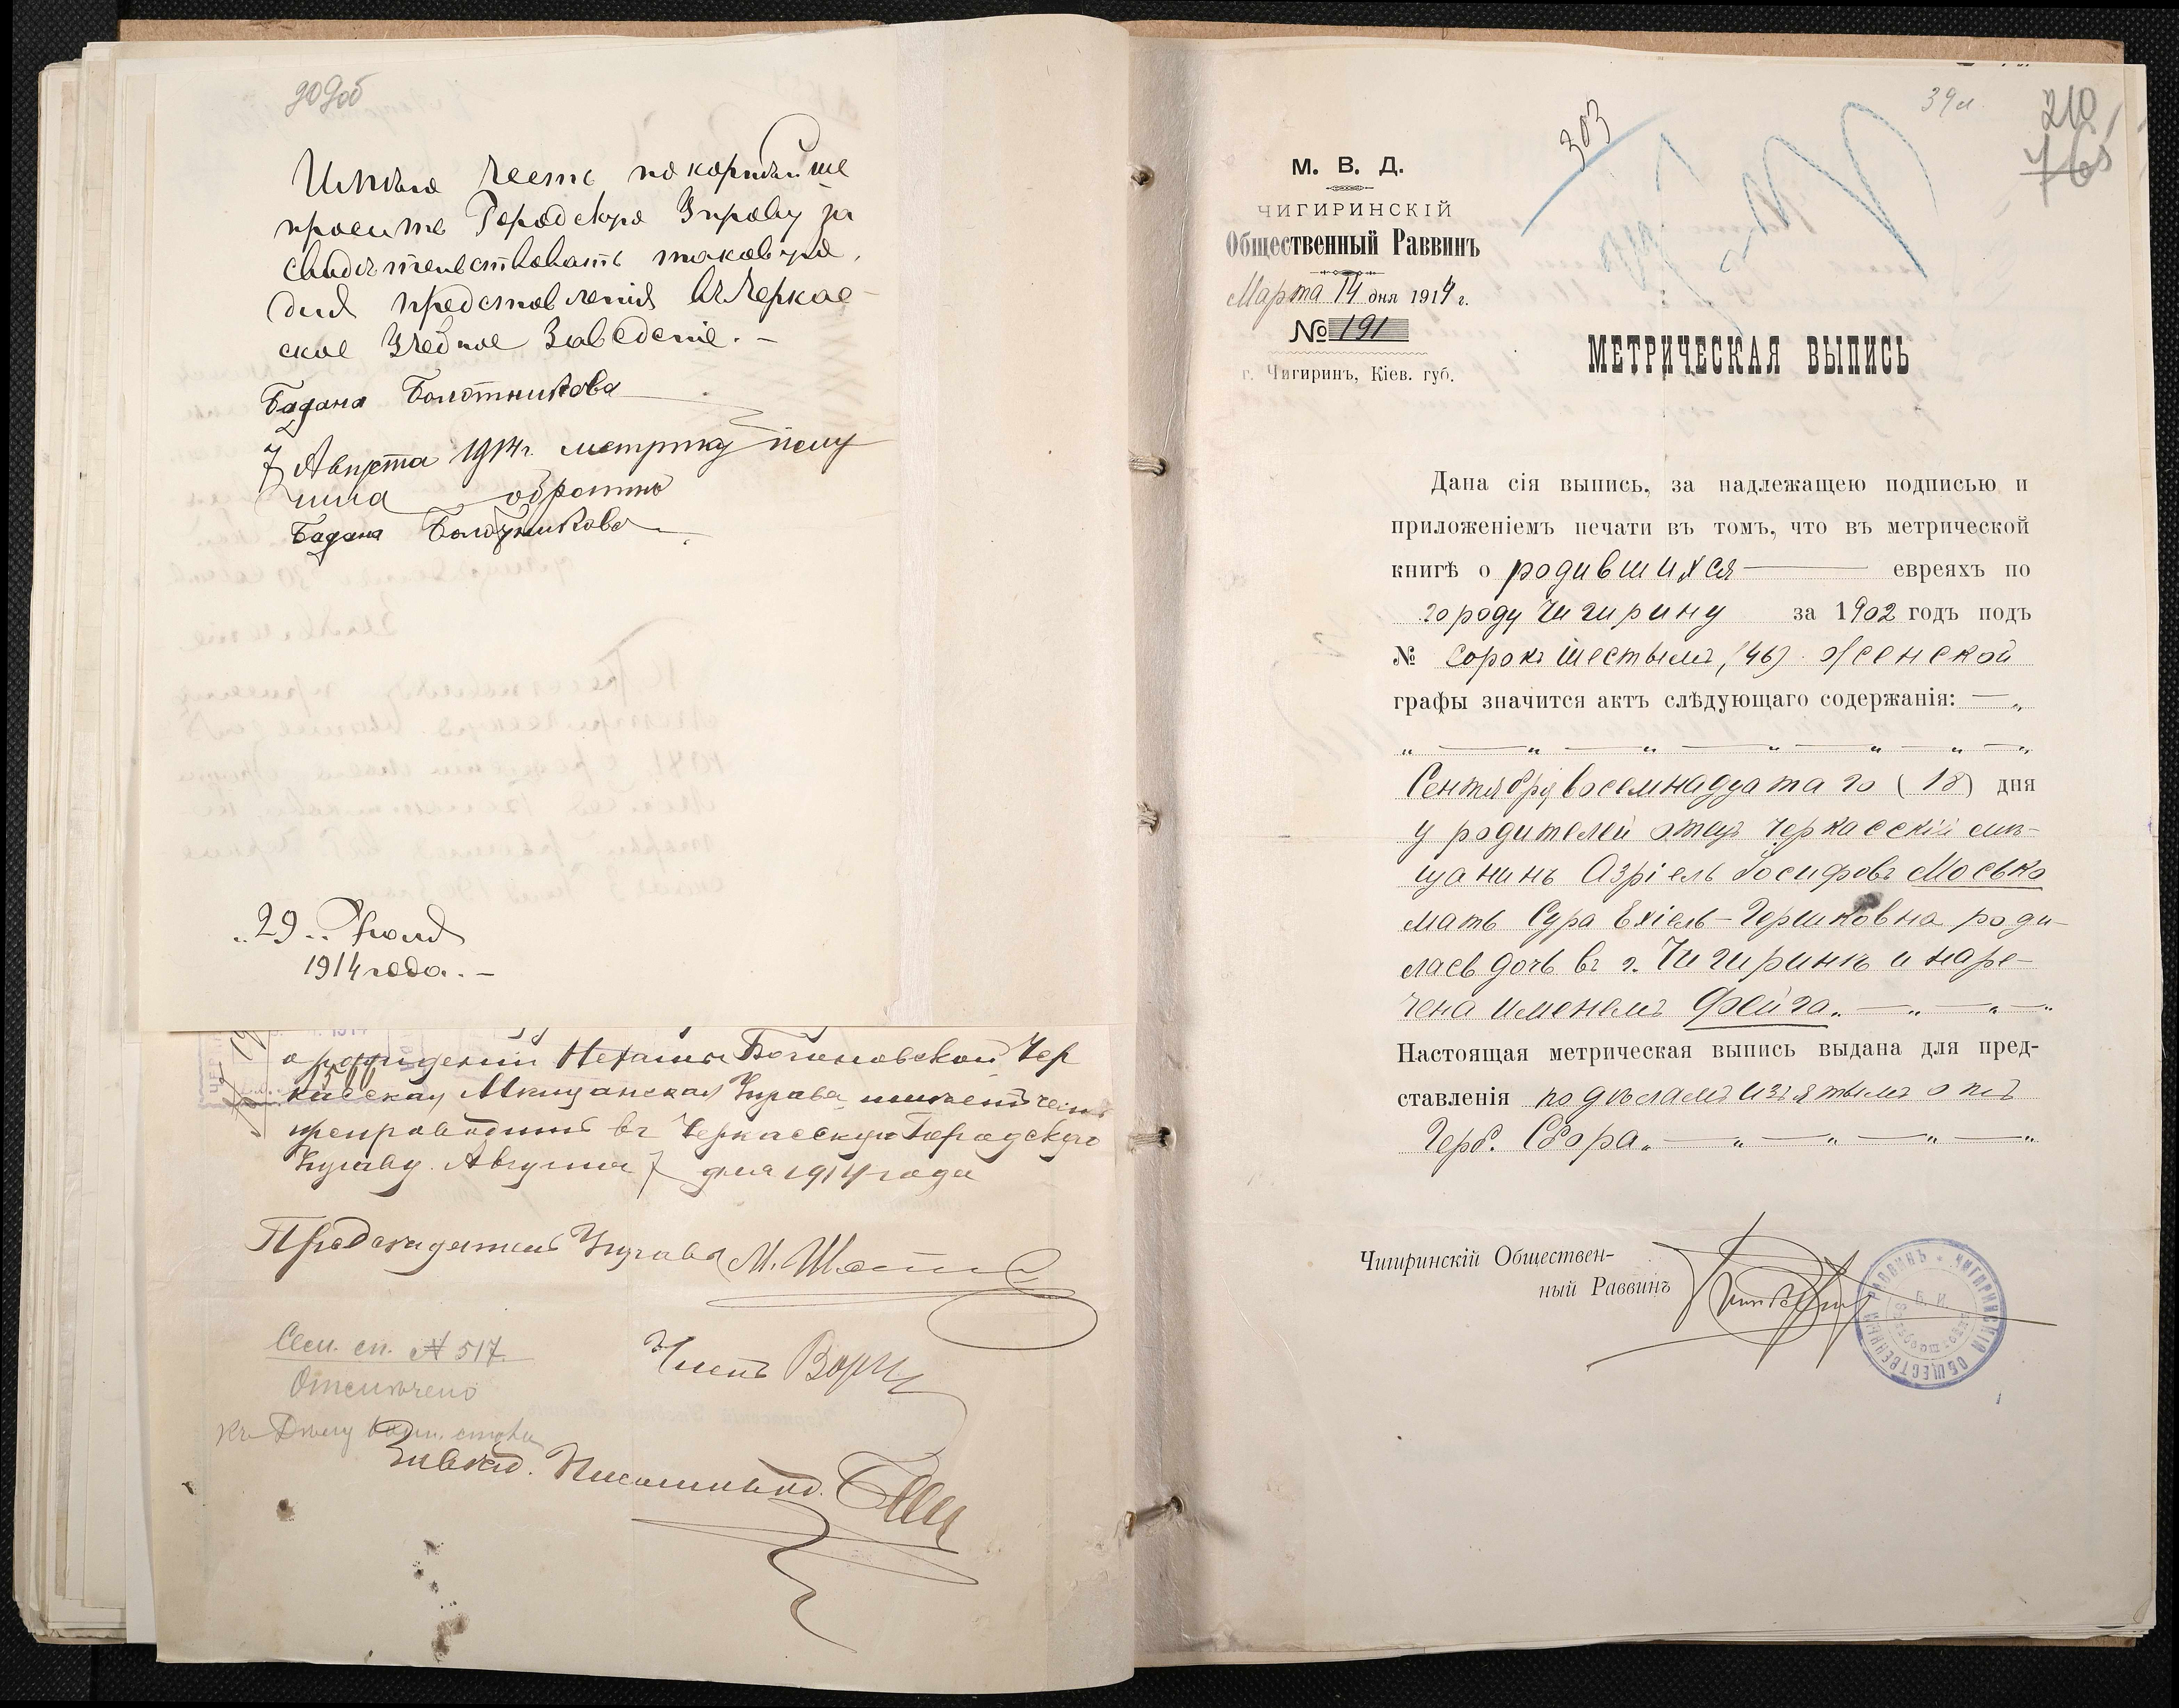 Имѣю честь покорнѣйше
просить Городскую Управу за
свидѣтельствовать таковую,
для представленія въ Черкас-
ское Учебное Заведеніе. –
Бадана Болотникова
7 Августа 1914 г. метрику полу
чила обратно
Бадана Болотникова
„29„ Іюля
1914 года. –
о рожденіи Нехамы Богиновской, Чер
касская Мѣщанская Управа имѣетъ честь
препроводить въ Черкасскую Городскую
Управу. Августа 7 дня 1914 года
Предсѣдатель Управы М.
Членъ
Сем. сп. № 517.
Отмѣчено
къ Дѣлу
39 л.
210
765
303
М. В. Д.
ЧИГИРИНСКІЙ
Общественный Раввинъ
Марта 14 дня 1914 г.
№ 191
г. Чигиринъ, Кіев. губ.
МЕТРИЧЕСКАЯ ВЫПИСЬ
Дана сія выпись, за надлежащею подписью и
приложеніемъ печати въ томъ, что въ метрической
книгѣ о родившихся — евреяхъ по
городу Чигирину за 1902 годъ подъ
№ Сорокъ шестымъ, (46) женской
графы значится актъ слѣдующаго содержанія: — „
„ — „ — „ — „ — „ — „ — „
Сентября восемнадцатаго (18) дня
у родителей отецъ Черкасскій мѣ-
щанинъ Азріель Іосифовъ Моська
мать Сура Ехіель-Гершковна роди-
лась дочь въ г. Чигиринѣ и наре-
чена именемъ Фейга. „ — „ — „ — „
Настоящая метрическая выпись выдана для пред-
ставленія по дѣламъ изъятымъ отъ
Герб. Сбора. „ — „ — „ — „ — „
Чигиринскій Обществен-
ный Раввинъ
ЧИГИРИНСКІЙ ОБЩЕСТВЕННЫЙ РАВВИНЪ